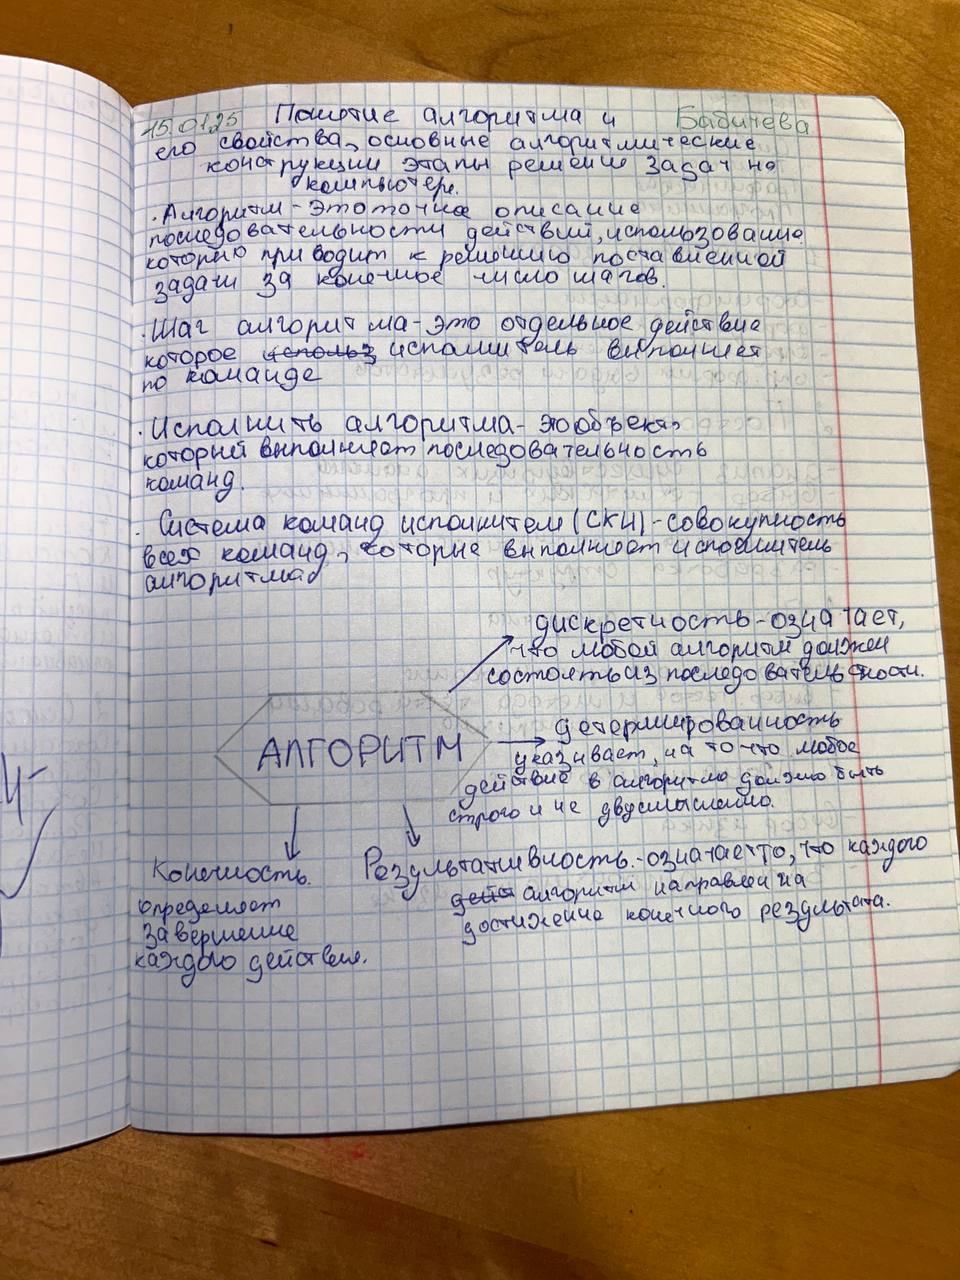 15.01.25 Понятие алгоритма и Бабичева
его свойства, основные алгоритмические
конструкции этапы решение задач на
компьютере.
. Алгоритм - это точное описание
последовательности действий, использование
которые приводит к решению поставленной
задачи за конечное число шагов.
. Шаг алгоритма - это отдельное действие
которое использ исполнитель выполняет
по команде
. Исполнить алгоритма - это объект,
который выполняет последовательность
команд.
. Система команд исполнителя (СКИ) - совокупность
всех команд, которые выполняет исполнитель
алгоритма
дискретность - означает,
что любой алгоритм должен
состоять из последовательности.
АЛГОРИТМ
детермированность
указывает, на то что любое
действие в алгоритме должно быть
строго и не двусмысленно.
Конечность.
определяет
завершение
каждого действия.
Результативность. - означает то, что каждого
дейст алгоритм направлен на
достижение конечного результата.